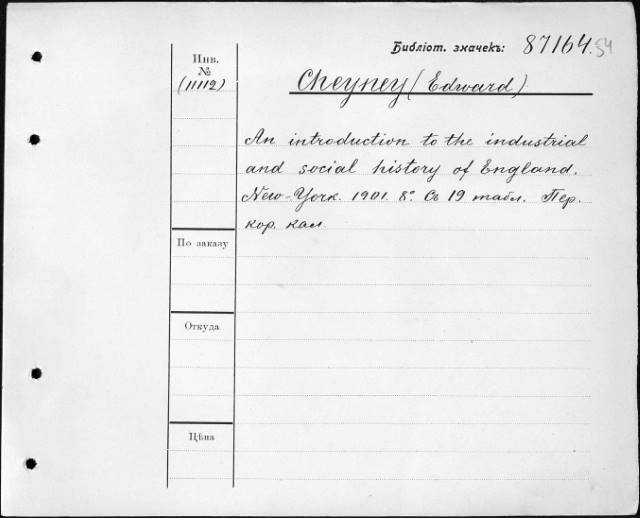 Библіот. значекъ: 87164.54
Инв.
№
(11112)
Cheyney (Edward)
An introduction to the industrial
and social history of England.
New-York. 1901. 8°. Съ 19 табл. Пер.
кор. кал.
По заказу
Откуда
Цѣна